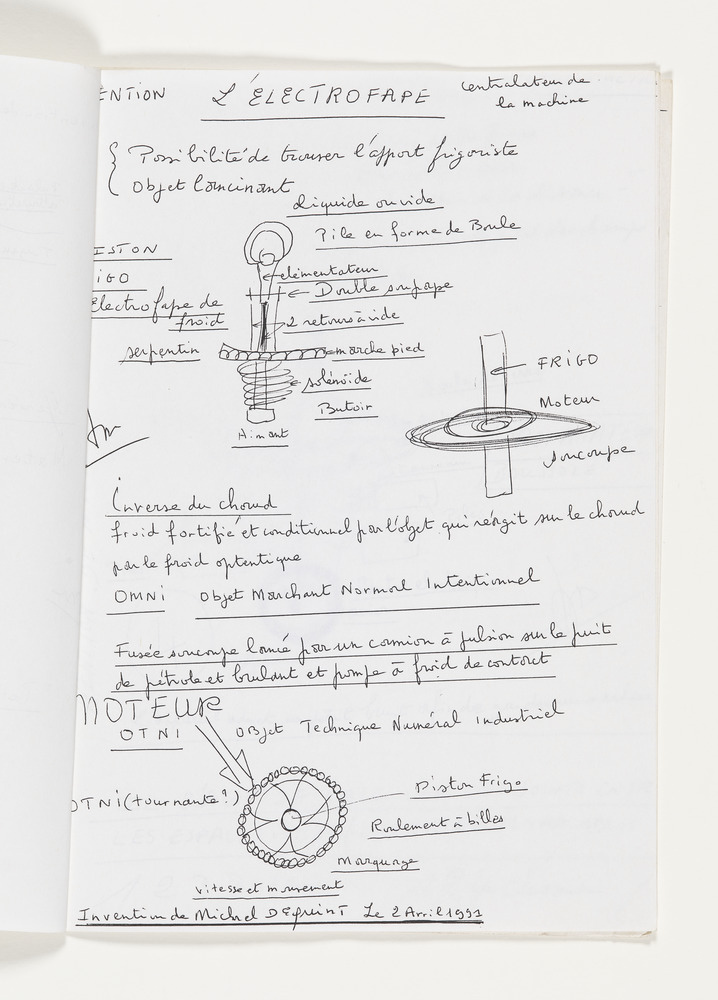 ENTION L'ÉLECTROFAPE centralateur de
la machine
Possibilité de trouver l'apport frigoriste
Objet lancinant
Liquide ou vide
Pile en forme de Boule
ISTON
IGO
élémentateur
Double soupape
Electrofape de
froid
2 retours à vide
serpentin
marche pied
solénoïde
Butoir
Aimant
FRIGO
Moteur
soucoupe
Inverse du chaud
froid fortifié et conditionnel par l'objet qui réagit sur le chaud
par le froid optentique
OMNI Objet Marchant Normal Intentionnel
Fusée soucoupe lancé par un camion à pulsion sur le puit
de pétrole et brulant et pompe à froid de contact
MOTEUR
OTNI Objet Technique Numéral Industriel
OTNI (tournante ?)
Piston Frigo
Roulement à billes
Marquage
vitesse et mouvement
Invention de Michel DEquint Le 2 Avril 1991